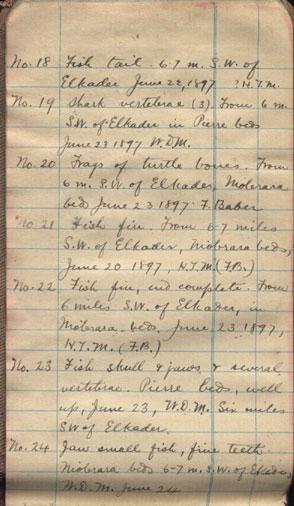 No. 18 Fish tail. 6-7 m. S.W. of
Elkader June 22, 1897 ? H.T.M.
No. 19 Shark vertebrae (3). From 6 m.
S.W. of Elkader in Pierre beds
June 23 1897 W.D.M.
No. 20 Frags of turtle bones. From
6 m. S.W. of Elkader, Niobrara
bed June 23 1897. F. Baber
No 21 Fish fin. From 6-7 miles
S.W. of Elkader, Niobrara beds,
June 20 1897, H.T.M. (F.B.)
No. 22 Fish fin, end complete. From
6 miles S.W. of Elkader, in
Niobrara beds. June 23 1897,
H.T.M. (F.B.)
No. 23 Fish skull & jaws & several
vertebrae. Pierre beds, well
up, June 23, W.D.M. Six miles
SW of Elkader.
No. 24 Jaw small fish, fine teeth.
Niobrara beds 6-7 m. S.W. of
W.D.M. June 24